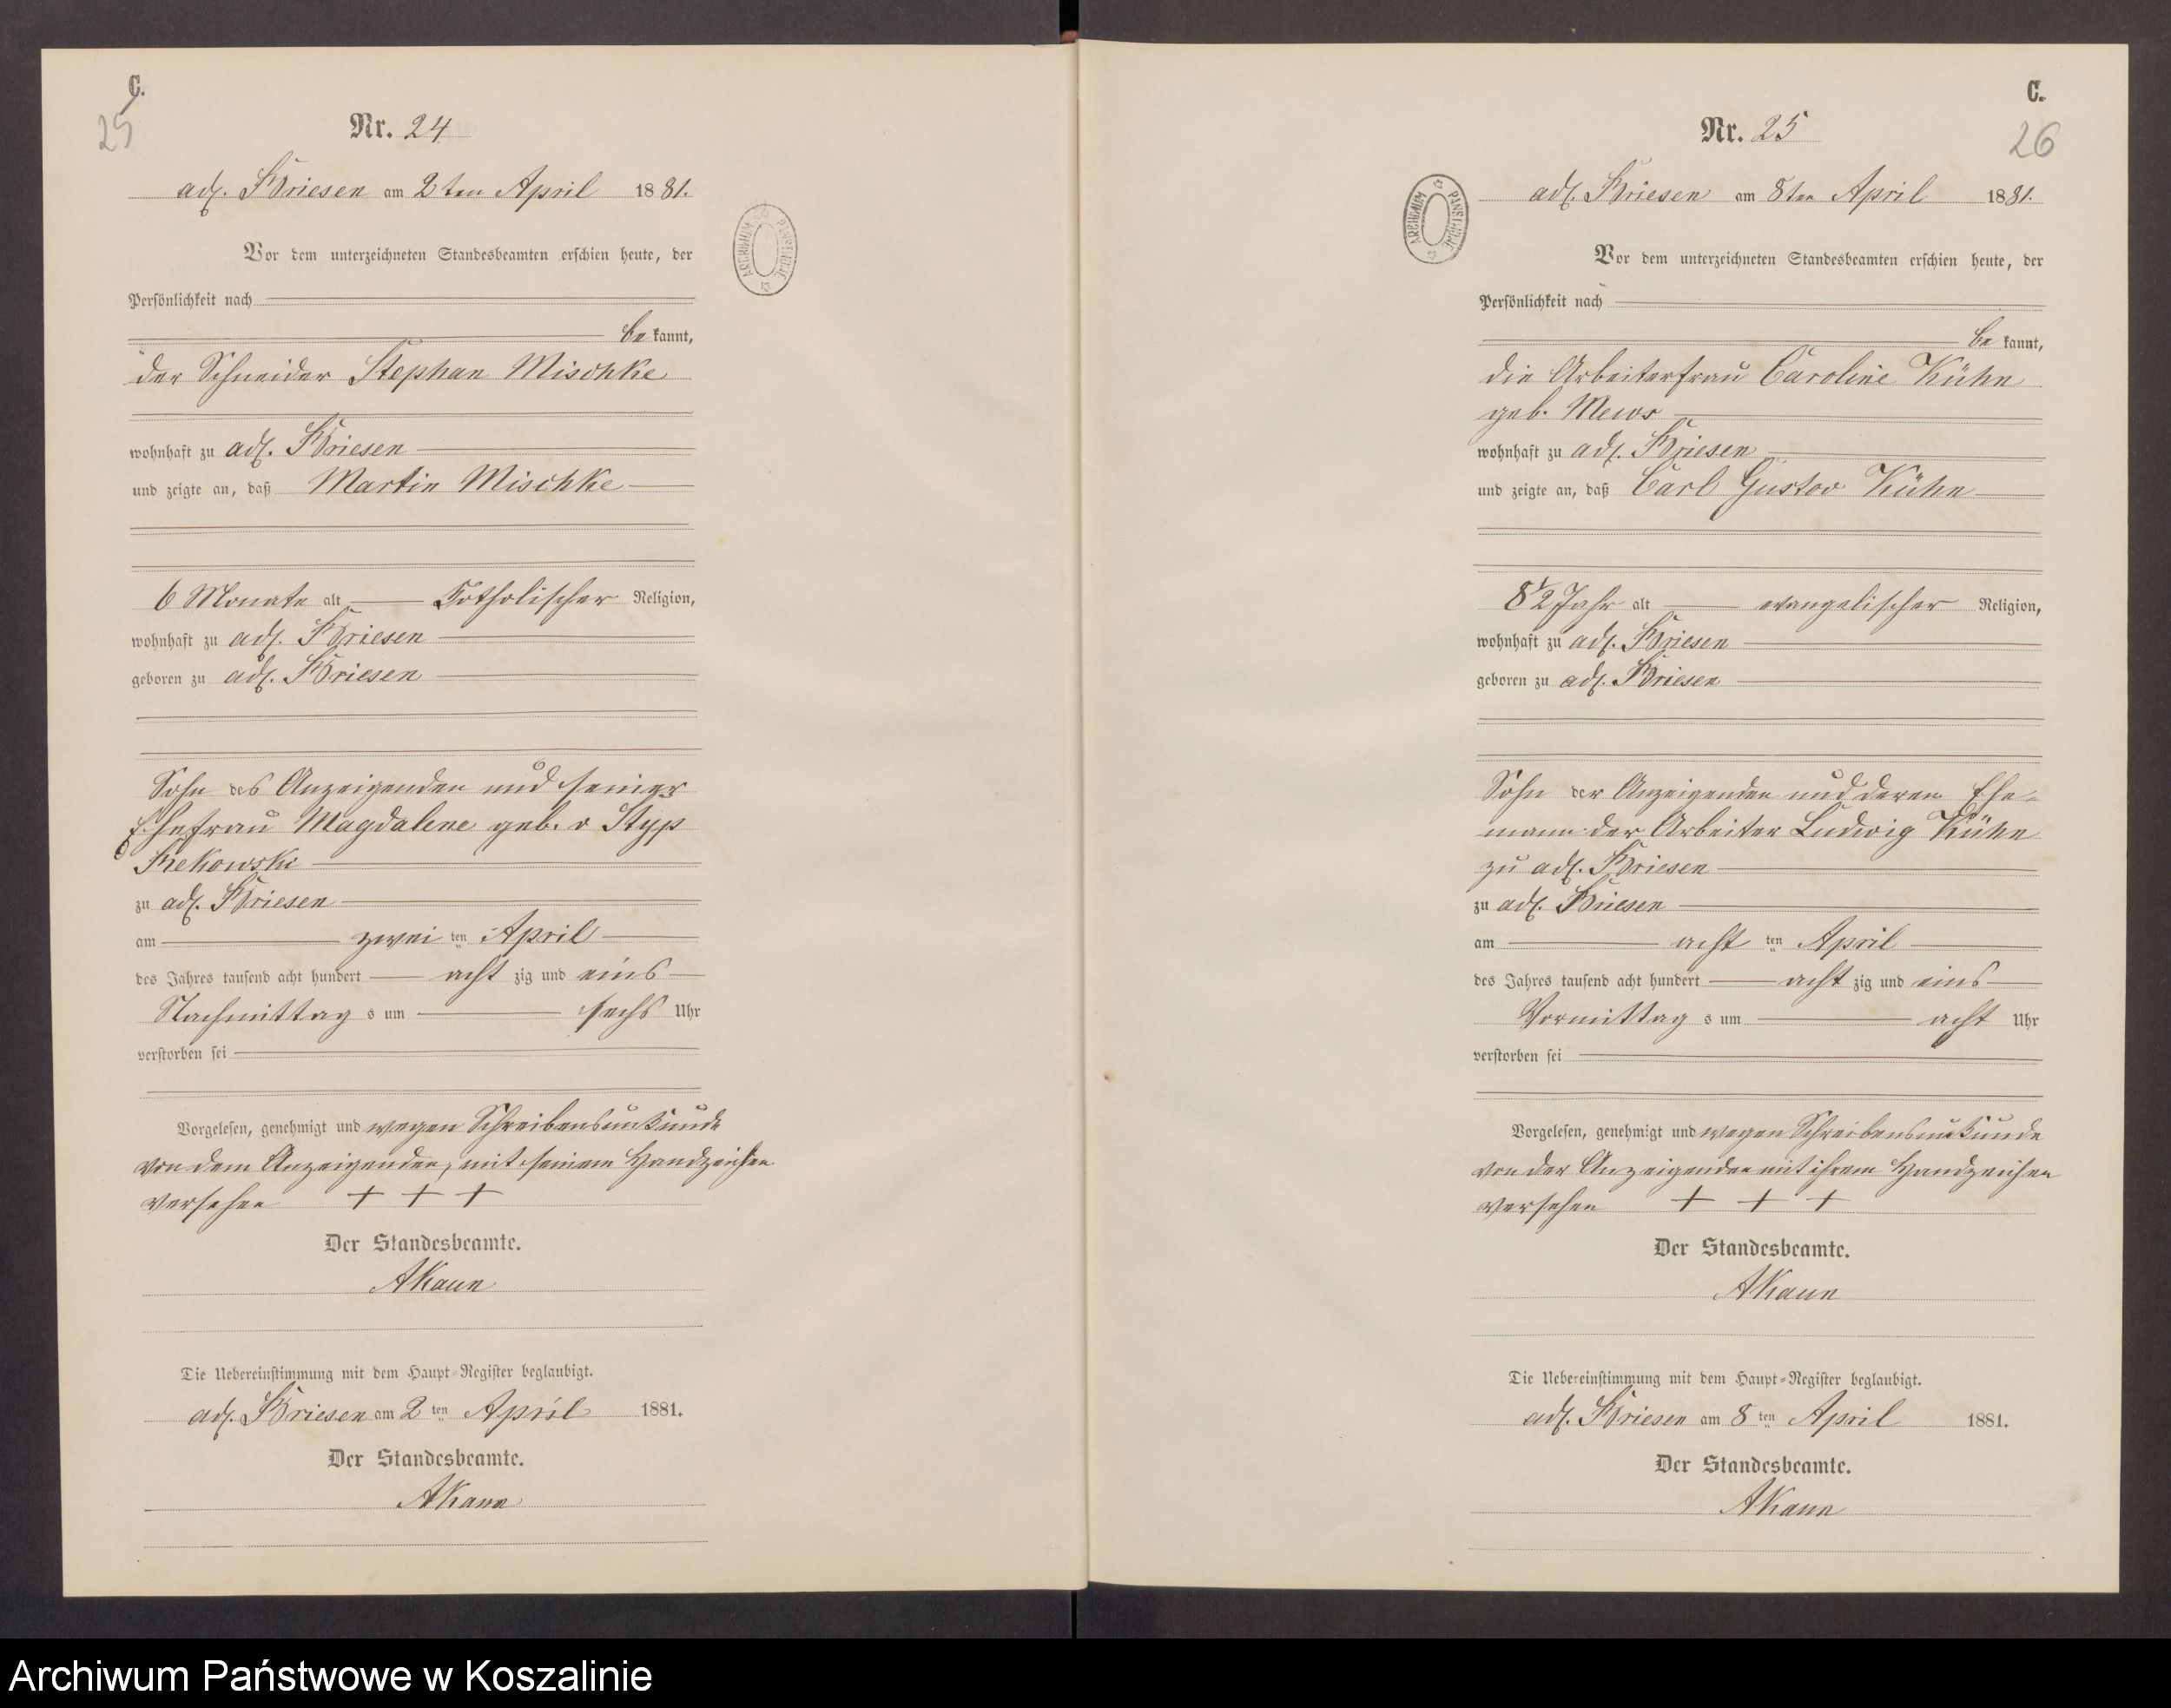 C.
25
Nr. 24
adl. Briesen am 2ten April 1881.
Vor dem unterzeichneten Standesbeamten erschien heute, der
Persönlichkeit nach
be kannt,
der Schneider Stephan Mischke
wohnhaft zu adl. Briesen
und zeigte an, daß Martin Mischke
6 Monate alt katholischer Religion,
wohnhaft zu adl. Briesen
geboren zu adl. Briesen
Sohn des Anzeigenden und seiner
Ehefrau Magdalene geb. v Styp
Rekowski
zu adl. Briesen
am zwei ten April
des Jahres tausend acht hundert acht zig und eins
Nachmittag s um sechs Uhr
verstorben sei
Vorgelesen, genehmigt und wegen Schreibensunkunde
von dem Anzeigenden, mit seinem Handzeichen
versehen + + +
Der Standesbeamte.
AKaun
Die Uebereinstimmung mit dem Haupt-Register beglaubigt.
adl. Briesen am 2 ten April 1881.
Der Standesbeamte.
AKaun
ARCHIWUM PAŃSTWOWE
C.
26
Nr. 25
adl. Briesen am 8ten April 1881.
ARCHIWUM PAŃSTWOWE
Vor dem unterzeichneten Standesbeamten erschien heute, der
Persönlichkeit nach
be kannt,
die Arbeiterfrau Caroline Kühn
geb. Mews
wohnhaft zu adl. Briesen
und zeigte an, daß Carl Gustav Kühn
8 1/2 Jahr alt evangelischer Religion,
wohnhaft zu adl. Briesen
geboren zu adl. Briesen
Sohn der Anzeigenden und deren Ehe-
mann der Arbeiter Ludwig Kühn
zu adl. Briesen
zu adl. Briesen
am acht ten April
des Jahres tausend acht hundert acht zig und eins
Vormittag s um acht Uhr
verstorben sei
Vorgelesen, genehmigt und wegen Schreibensunkunde
von der Anzeigenden mit ihrem Handzeichen
versehen + + +
Der Standesbeamte.
AKaun
Die Uebereinstimmung mit dem Haupt-Register beglaubigt.
adl. Briesen am 8 ten April 1881.
Der Standesbeamte.
AKaun
Archiwum Państwowe w Koszalinie